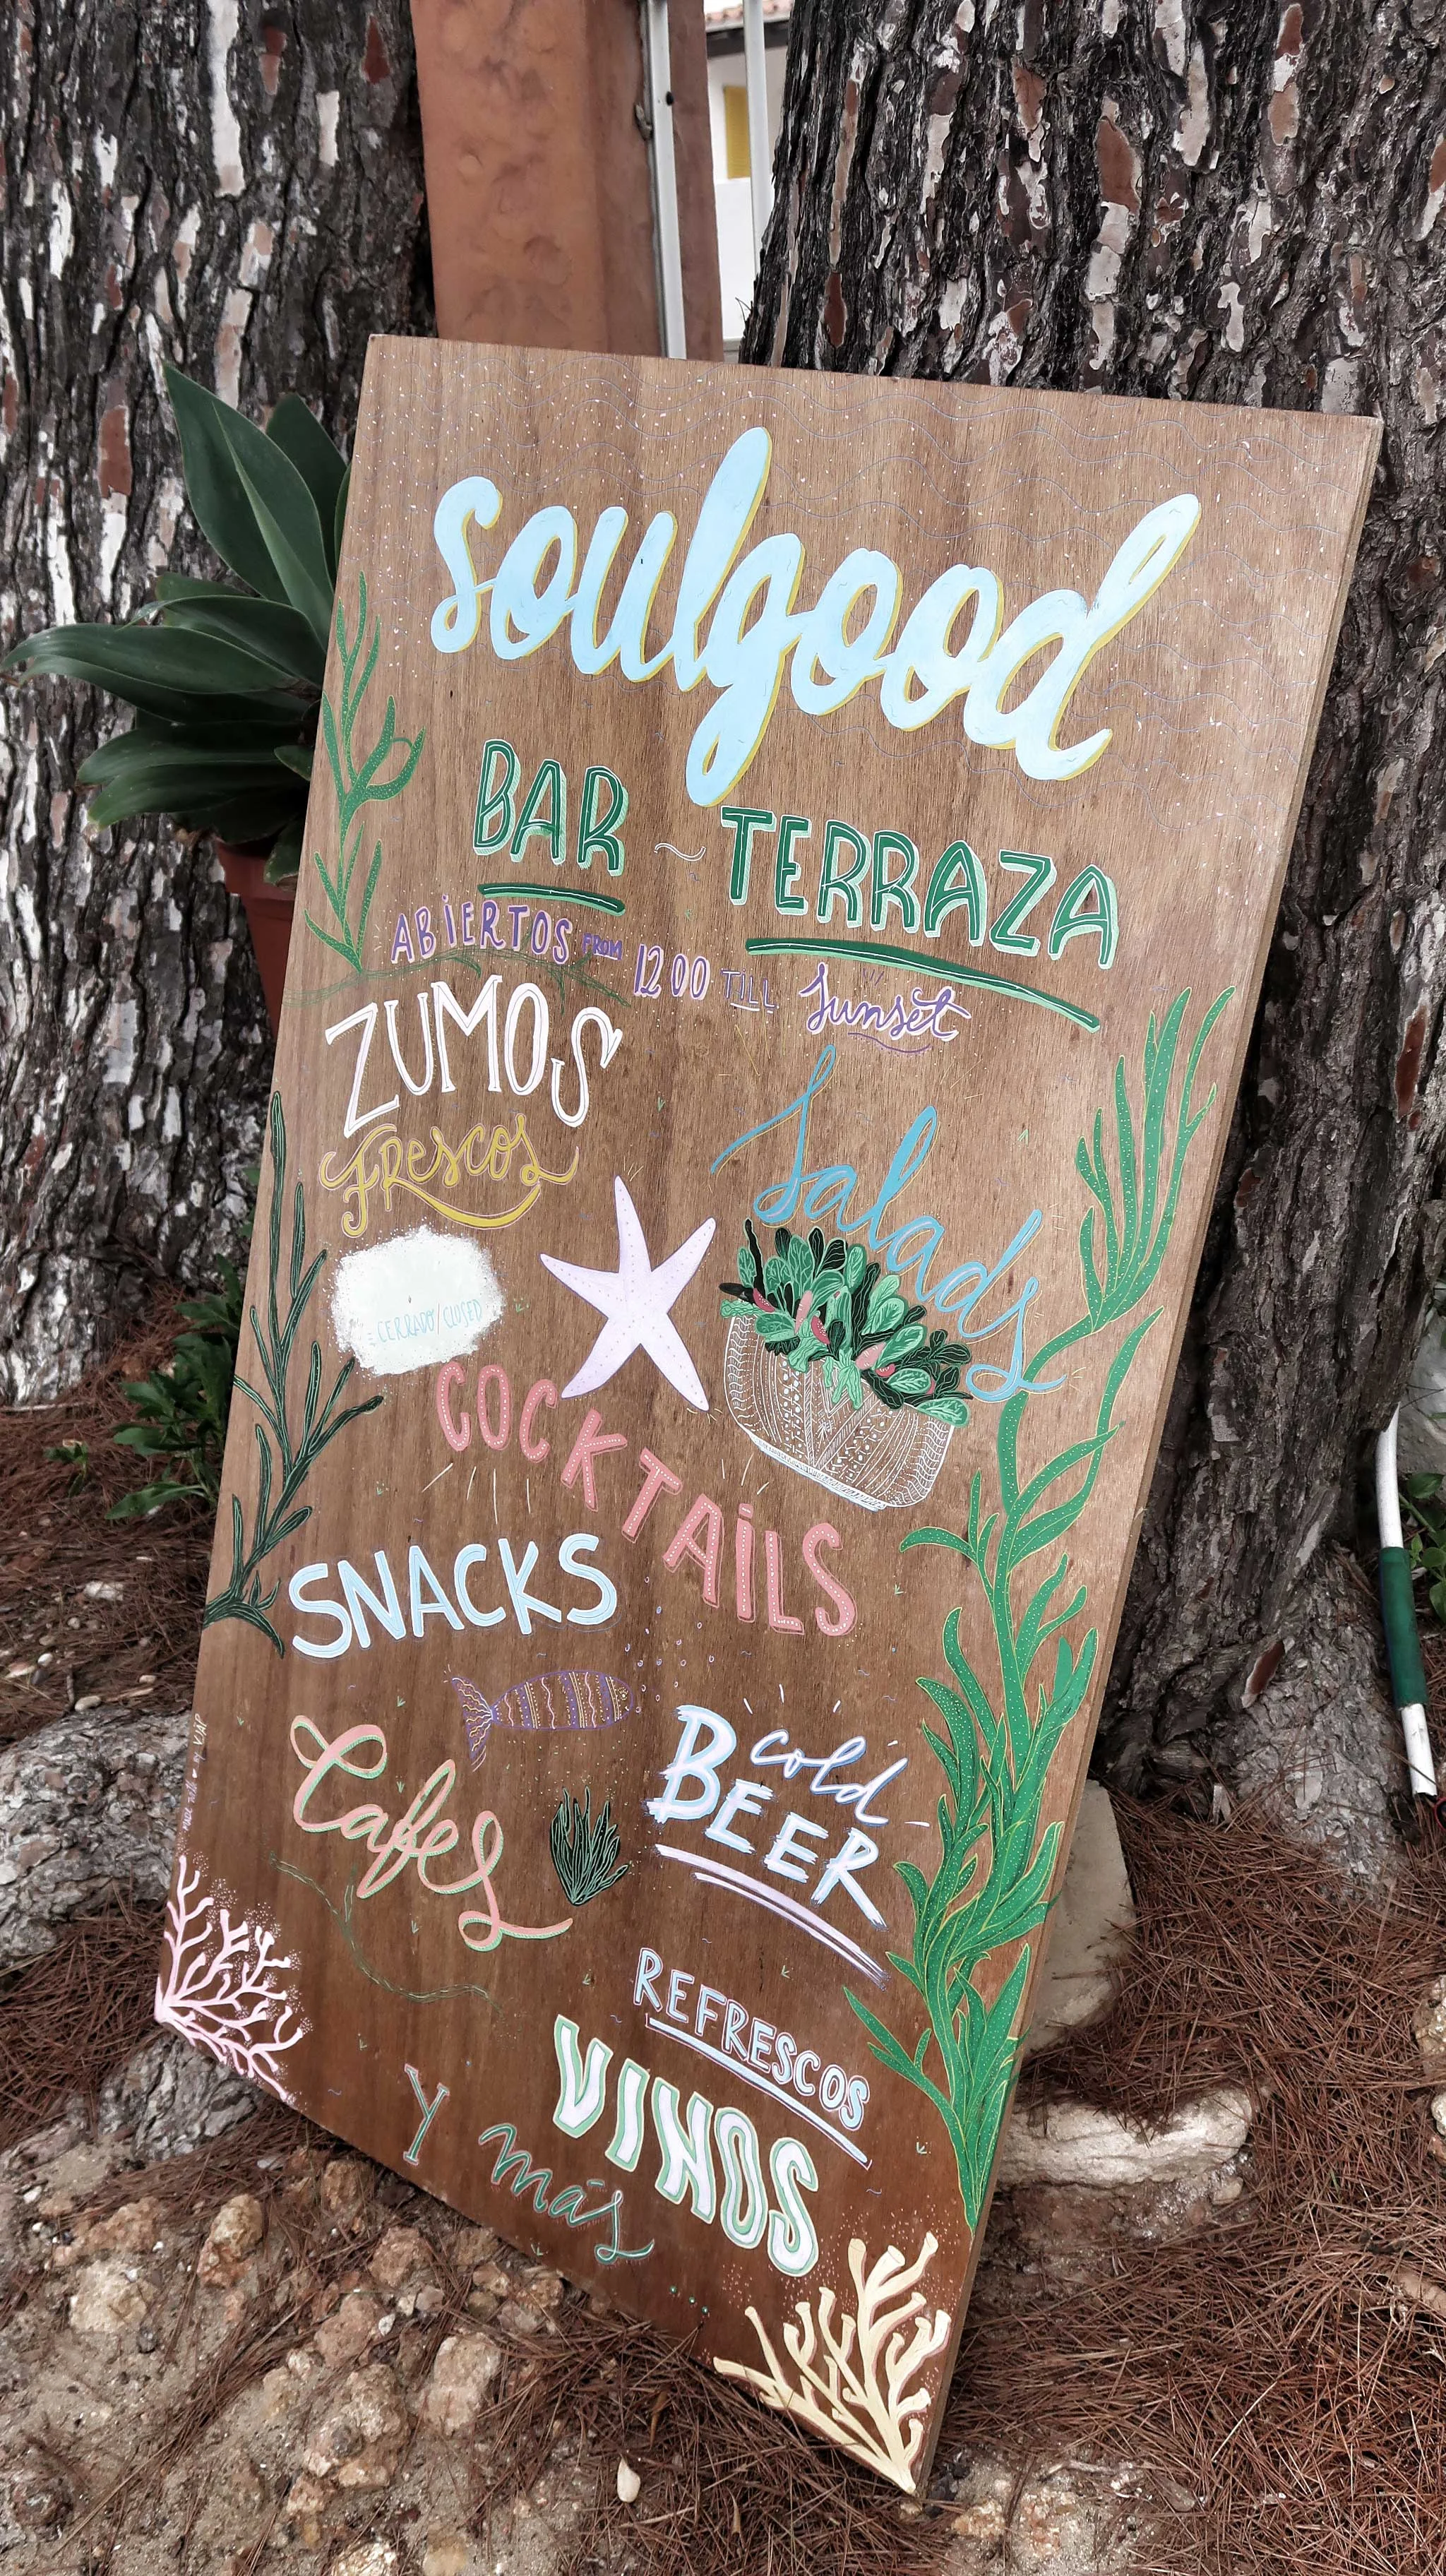 soulgood
BAR ~ TERRAZA
ABIERTOS FROM 1200 TILL Sunset
ZUMOS
FRescos
Salads
: CERRADO/CLOSED
COCKTAILS
SNACKS
Cafes
cold
BEER
REFRESCOS
VINOS
Y más